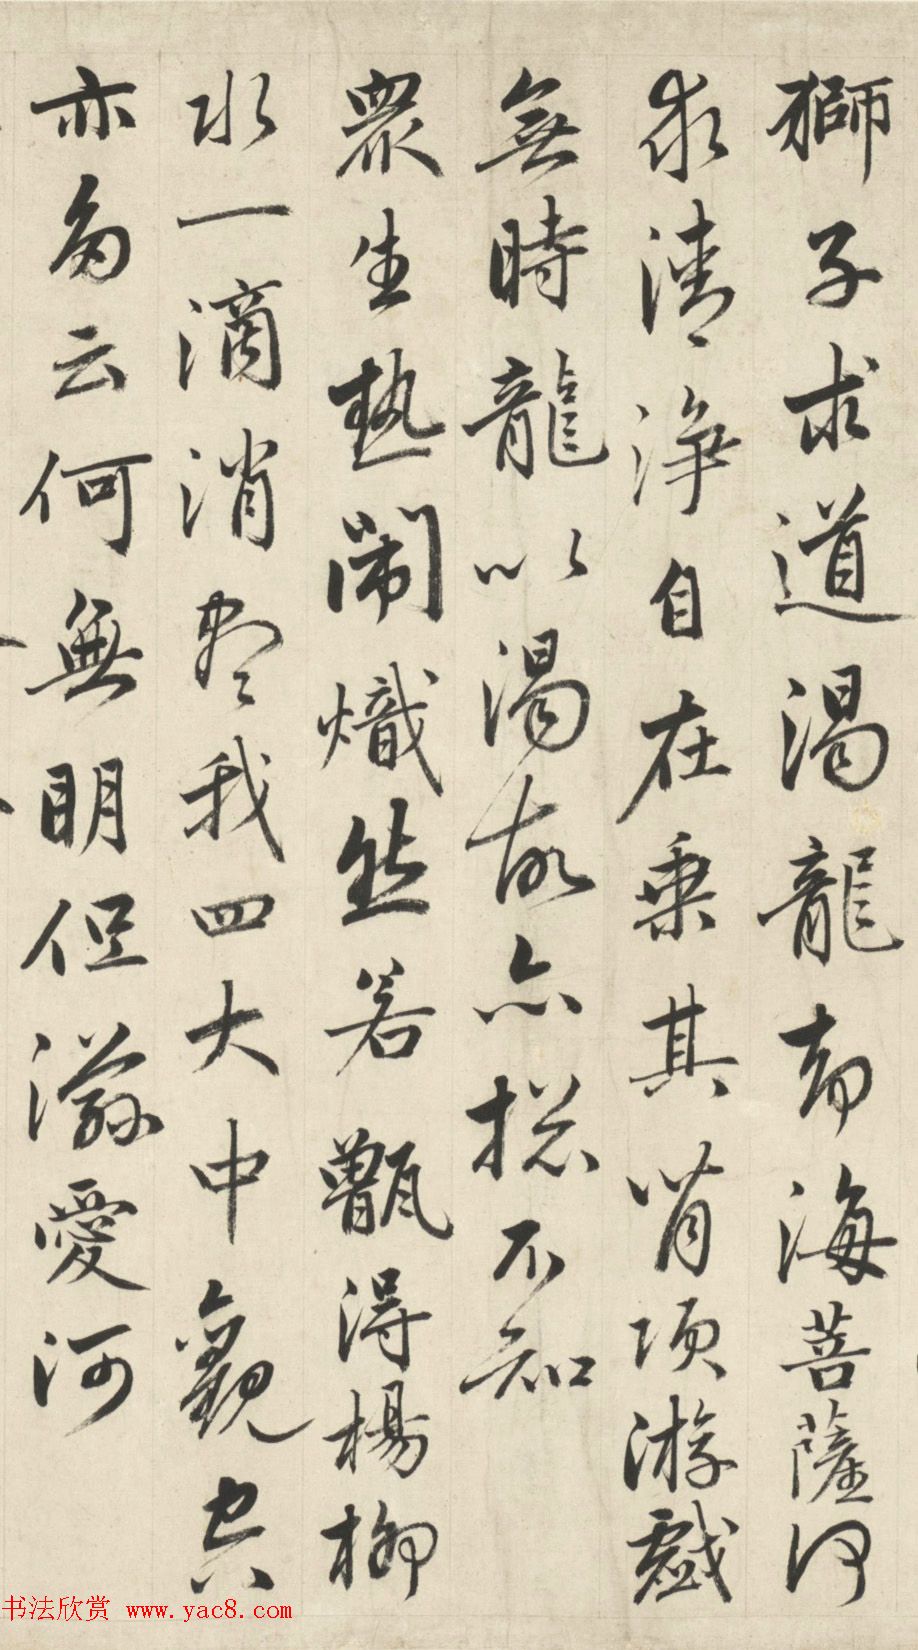 獅子求道渴龍奔海菩薩何
求清淨自在乘其背項游戲
無時龍以渴故亦總不知
眾生熱鬧熾然若甑得楊柳
水一滴消盡我四大中觀空
亦勿云何無明但溺愛河
书法欣赏 www.yac8.com